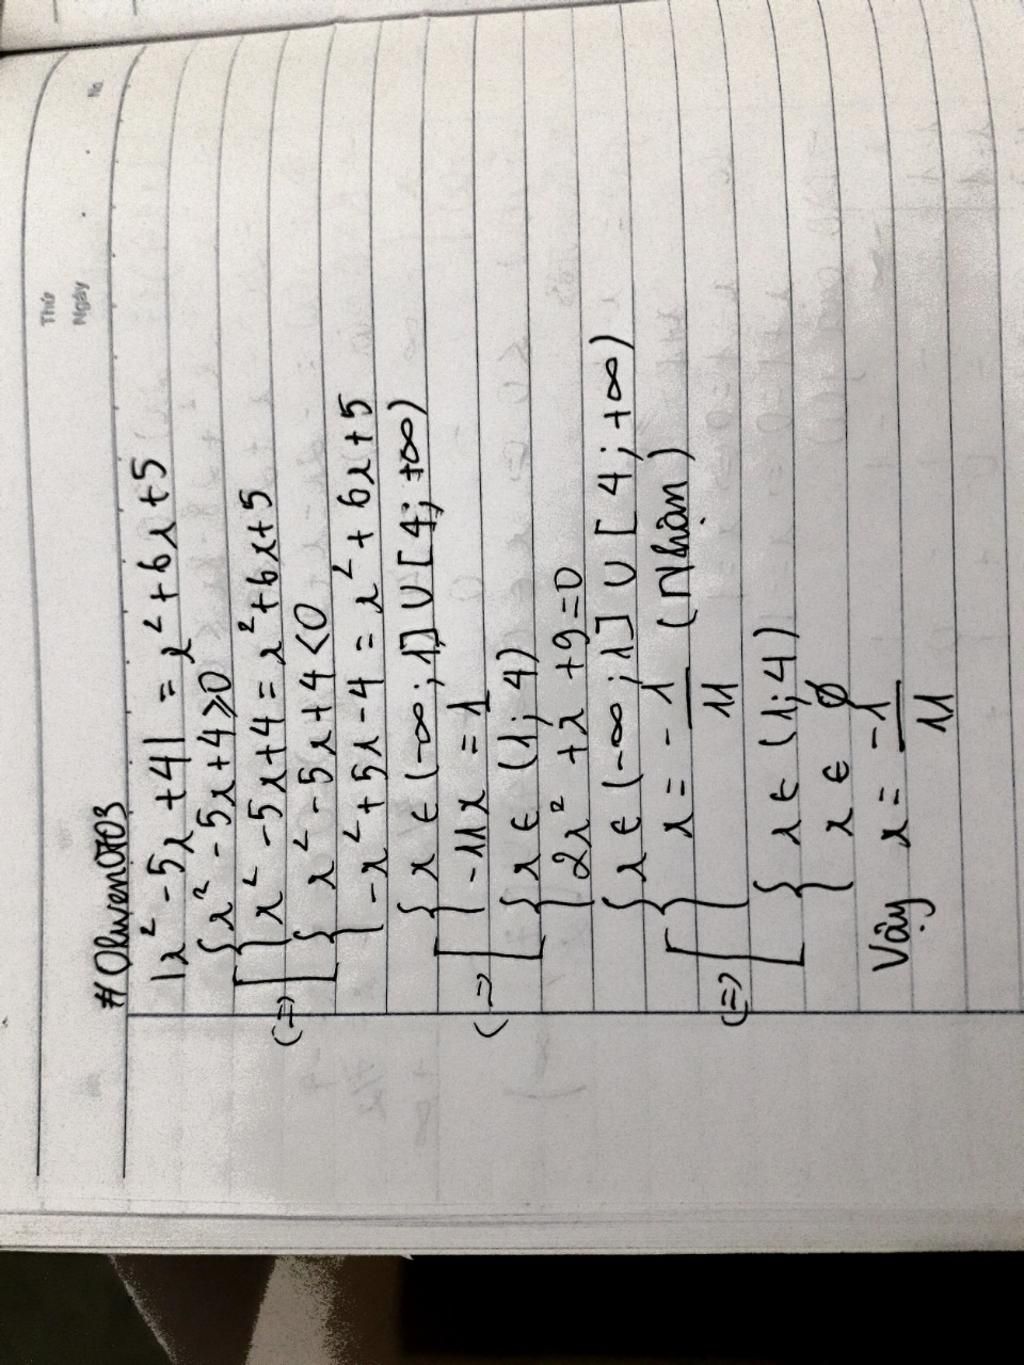 Thứ
Ngày
No
# Oliwen0703
|x² - 5x + 4| = x² + 6x + 5
{ x² - 5x + 4 ≥ 0
[ { x² - 5x + 4 = x² + 6x + 5
(=) { x² - 5x + 4 < 0
[ { -x² + 5x - 4 = x² + 6x + 5
{ x ∈ (-∞ ; 1] ∪ [4 ; +∞)
[ { -11x = 1
(=) { x ∈ (1 ; 4)
[ { 2x² + x + 9 = 0
{ x ∈ (-∞ ; 1] ∪ [4 ; +∞)
[ { x = - 1/11 (Nhận)
(=) [ { x ∈ (1 ; 4)
{ x ∈ ∅
Vậy x = -1/11